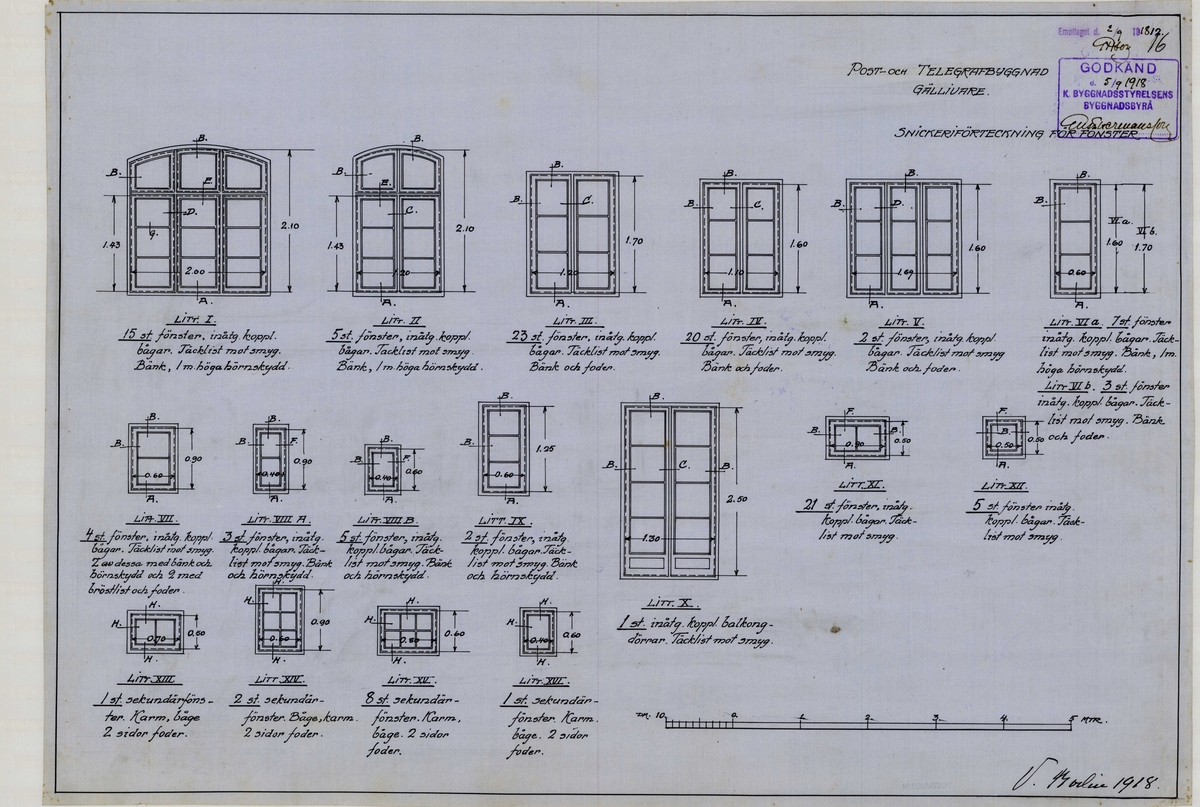 Emottaget d. 2/9 1918
16
GODKÄND
d. 5/9 1918
K. BYGGNADSSTYRELSENS
BYGGNADSBYRÅ
POST- OCH TELEGRAFBYGGNAD
GÄLLIVARE.
SNICKERIFÖRTECKNING FÖR FÖNSTER.
B. B. E. D. G. 1.43 2.00 2.10 A.
B. B. E. C. 1.43 1.20 2.10 A.
B. B. C. 1.20 1.70 A.
B. B. C. 1.10 1.60 A.
B. B. D. 1.69 1.60 A.
B. B. VI a. 1.60 VI b. 1.70 0.60 A.
LITT. I.
15 st. fönster, inåtg. koppl.
bågar. Täcklist mot smyg.
Bänk, 1 m. höga hörnskydd.
LITT. II
5 st. fönster, inåtg. koppl.
bågar. Täcklist mot smyg.
Bänk, 1 m. höga hörnskydd.
LITT. III.
23 st. fönster, inåtg. koppl.
bågar. Täcklist mot smyg.
Bänk och foder.
LITT. IV.
20 st. fönster, inåtg. koppl.
bågar. Täcklist mot smyg.
Bänk och foder.
LITT. V.
2 st. fönster, inåtg. koppl.
bågar. Täcklist mot smyg
Bänk och foder.
LITT. VI a. 7 st. fönster
inåtg. koppl. bågar. Täck-
list mot smyg. Bänk, 1 m.
höga hörnskydd.
LITT VI b. 3 st. fönster
inåtg. koppl. bågar. Täck-
list mot smyg. Bänk
och foder.
B. B. 0.60 0.90 A.
B. B. F. 0.40 0.90 A.
B. B. F. 0.40 0.60 A.
B. B. 0.60 1.25 A.
B. B. C. B. 1.30 2.50
F. B. B. 0.90 0.50 A.
F. B. 0.50 0.50 A.
LITT. VII.
4 st. fönster, inåtg. koppl.
bågar. Täcklist mot smyg.
2 av dessa med bänk och
hörnskydd och 2 med
bröstlist och foder.
LITT. VIII A.
3 st. fönster, inåtg.
koppl. bågar. Täck-
list mot smyg. Bänk
och hörnskydd.
LITT. VIII B.
5 st. fönster, inåtg.
koppl. bågar. Täck-
list mot smyg. Bänk
och hörnskydd.
LITT. IX
2 st. fönster, inåtg.
koppl. bågar. Täck-
list mot smyg. Bänk
och hörnskydd.
LITT. X.
1 st. inåtg. koppl. balkong-
dörrar. Täcklist mot smyg.
LITT. XI.
21 st. fönster, inåtg.
koppl. bågar. Täck-
list mot smyg.
LITT. XII.
5 st. fönster inåtg.
koppl. bågar. Täck-
list mot smyg.
H. H. 0.70 0.50 H.
H. H. 0.60 0.90 H.
H. H. 0.80 0.60 H.
H. H. 0.40 0.60 H.
LITT. XIII.
1 st. sekundärföns-
ter. Karm, båge
2 sidor foder.
LITT. XIV.
2 st. sekundär-
fönster. Båge, karm.
2 sidor foder.
LITT. XV.
8 st. sekundär-
fönster. Karm,
båge. 2 sidor
foder.
LITT. XVI.
1 st. sekundär-
fönster. Karm.
båge. 2 sidor
foder.
DM. 10 0 1 2 3 4 5 MTR.
V. Bodin 1918.